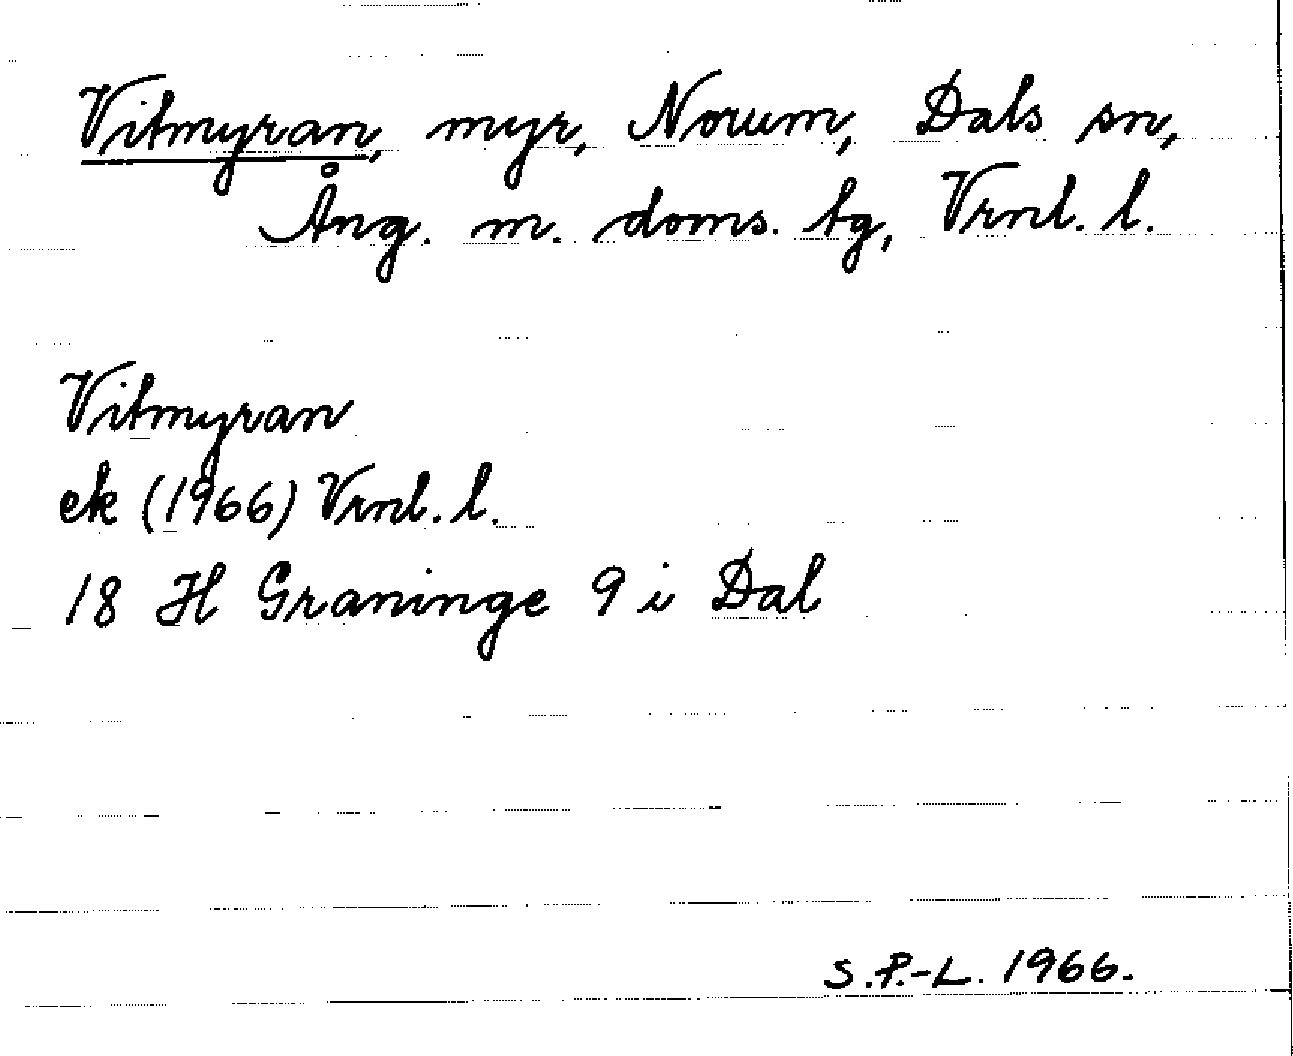 Vitmyran, myr, Norum, Dals sn,
Ång. m. doms. tg, Vrnl. l.
Vitmyran
ek (1966) Vrnl. l.
18 H Graninge 9 i Dal
S.P.-L. 1966.